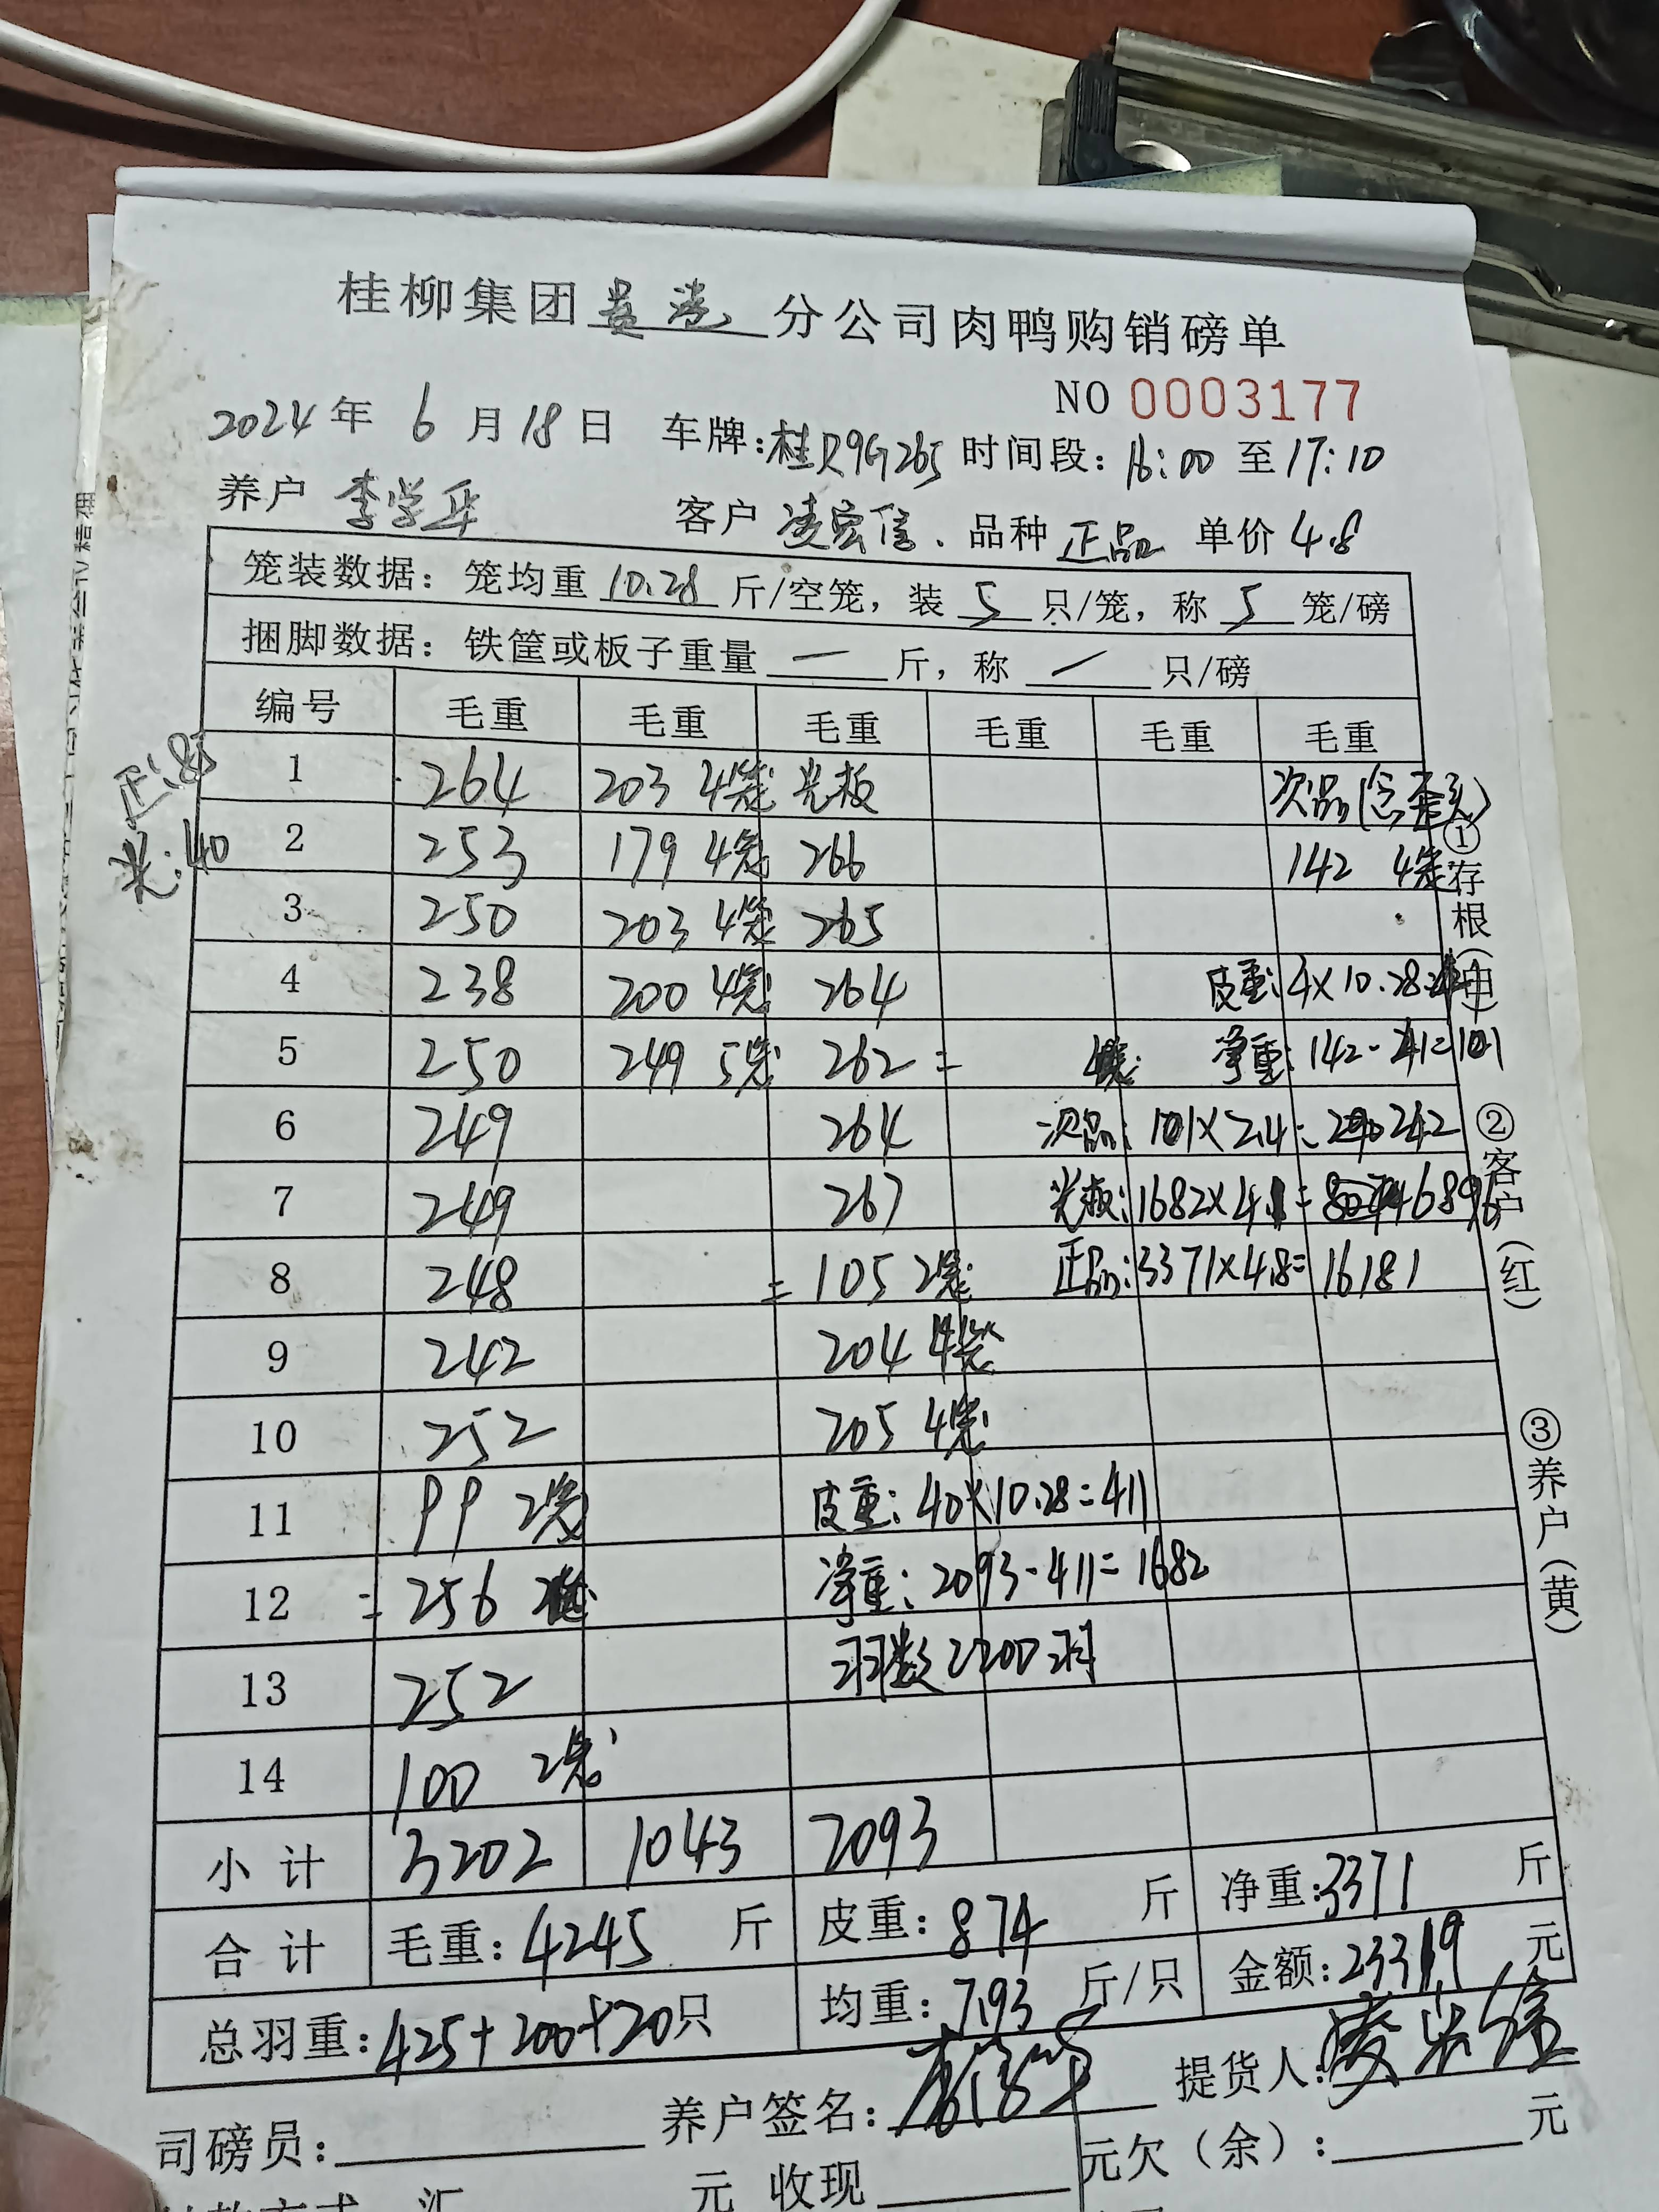 桂柳集团贵港分公司肉鸭购销磅单
NO 0003177
2024年 6月18日 车牌:桂R9G265 时间段:16:00至17:10
养户 李学华 客户 凌宏信 品种 正品 单价 4.8
笼装数据:笼均重 10.28 斤/空笼,装 5 只/笼,称 5 笼/磅
捆脚数据:铁筐或板子重量 — 斤,称 / 只/磅
编号 毛重 毛重 毛重 毛重 毛重 毛重
正:85
光:40
1 264 203 4笼 光板 次品(含歪头)
2 253 179 4笼 266 142 4笼
3 250 203 4笼 265
4 238 200 4笼 264 皮重:4×10.28=41
5 250 249 5笼 262= 净重:142-41=101
6 249 264 次品:101×2.4=242
7 249 267 光板:1682×4.1=6896
8 248 =105 2笼 正品:3371×4.8=16181
9 242 204 4笼
10 252 205 4笼
11 99 2笼 皮重:40×10.28=411
12 =256 净重:2093-411=1682
13 252 羽数:200羽
14 100 2笼
小计 3202 1043 2093
合计 毛重:4245 斤 皮重:874 斤 净重:3371 斤
总羽重:425+200+20只 均重:7.93 斤/只 金额:23319 元
司磅员: 养户签名: 提货人:凌宏信
元 收现 元欠(余): 元
①存根(白)
②客户(红)
③养户(黄)